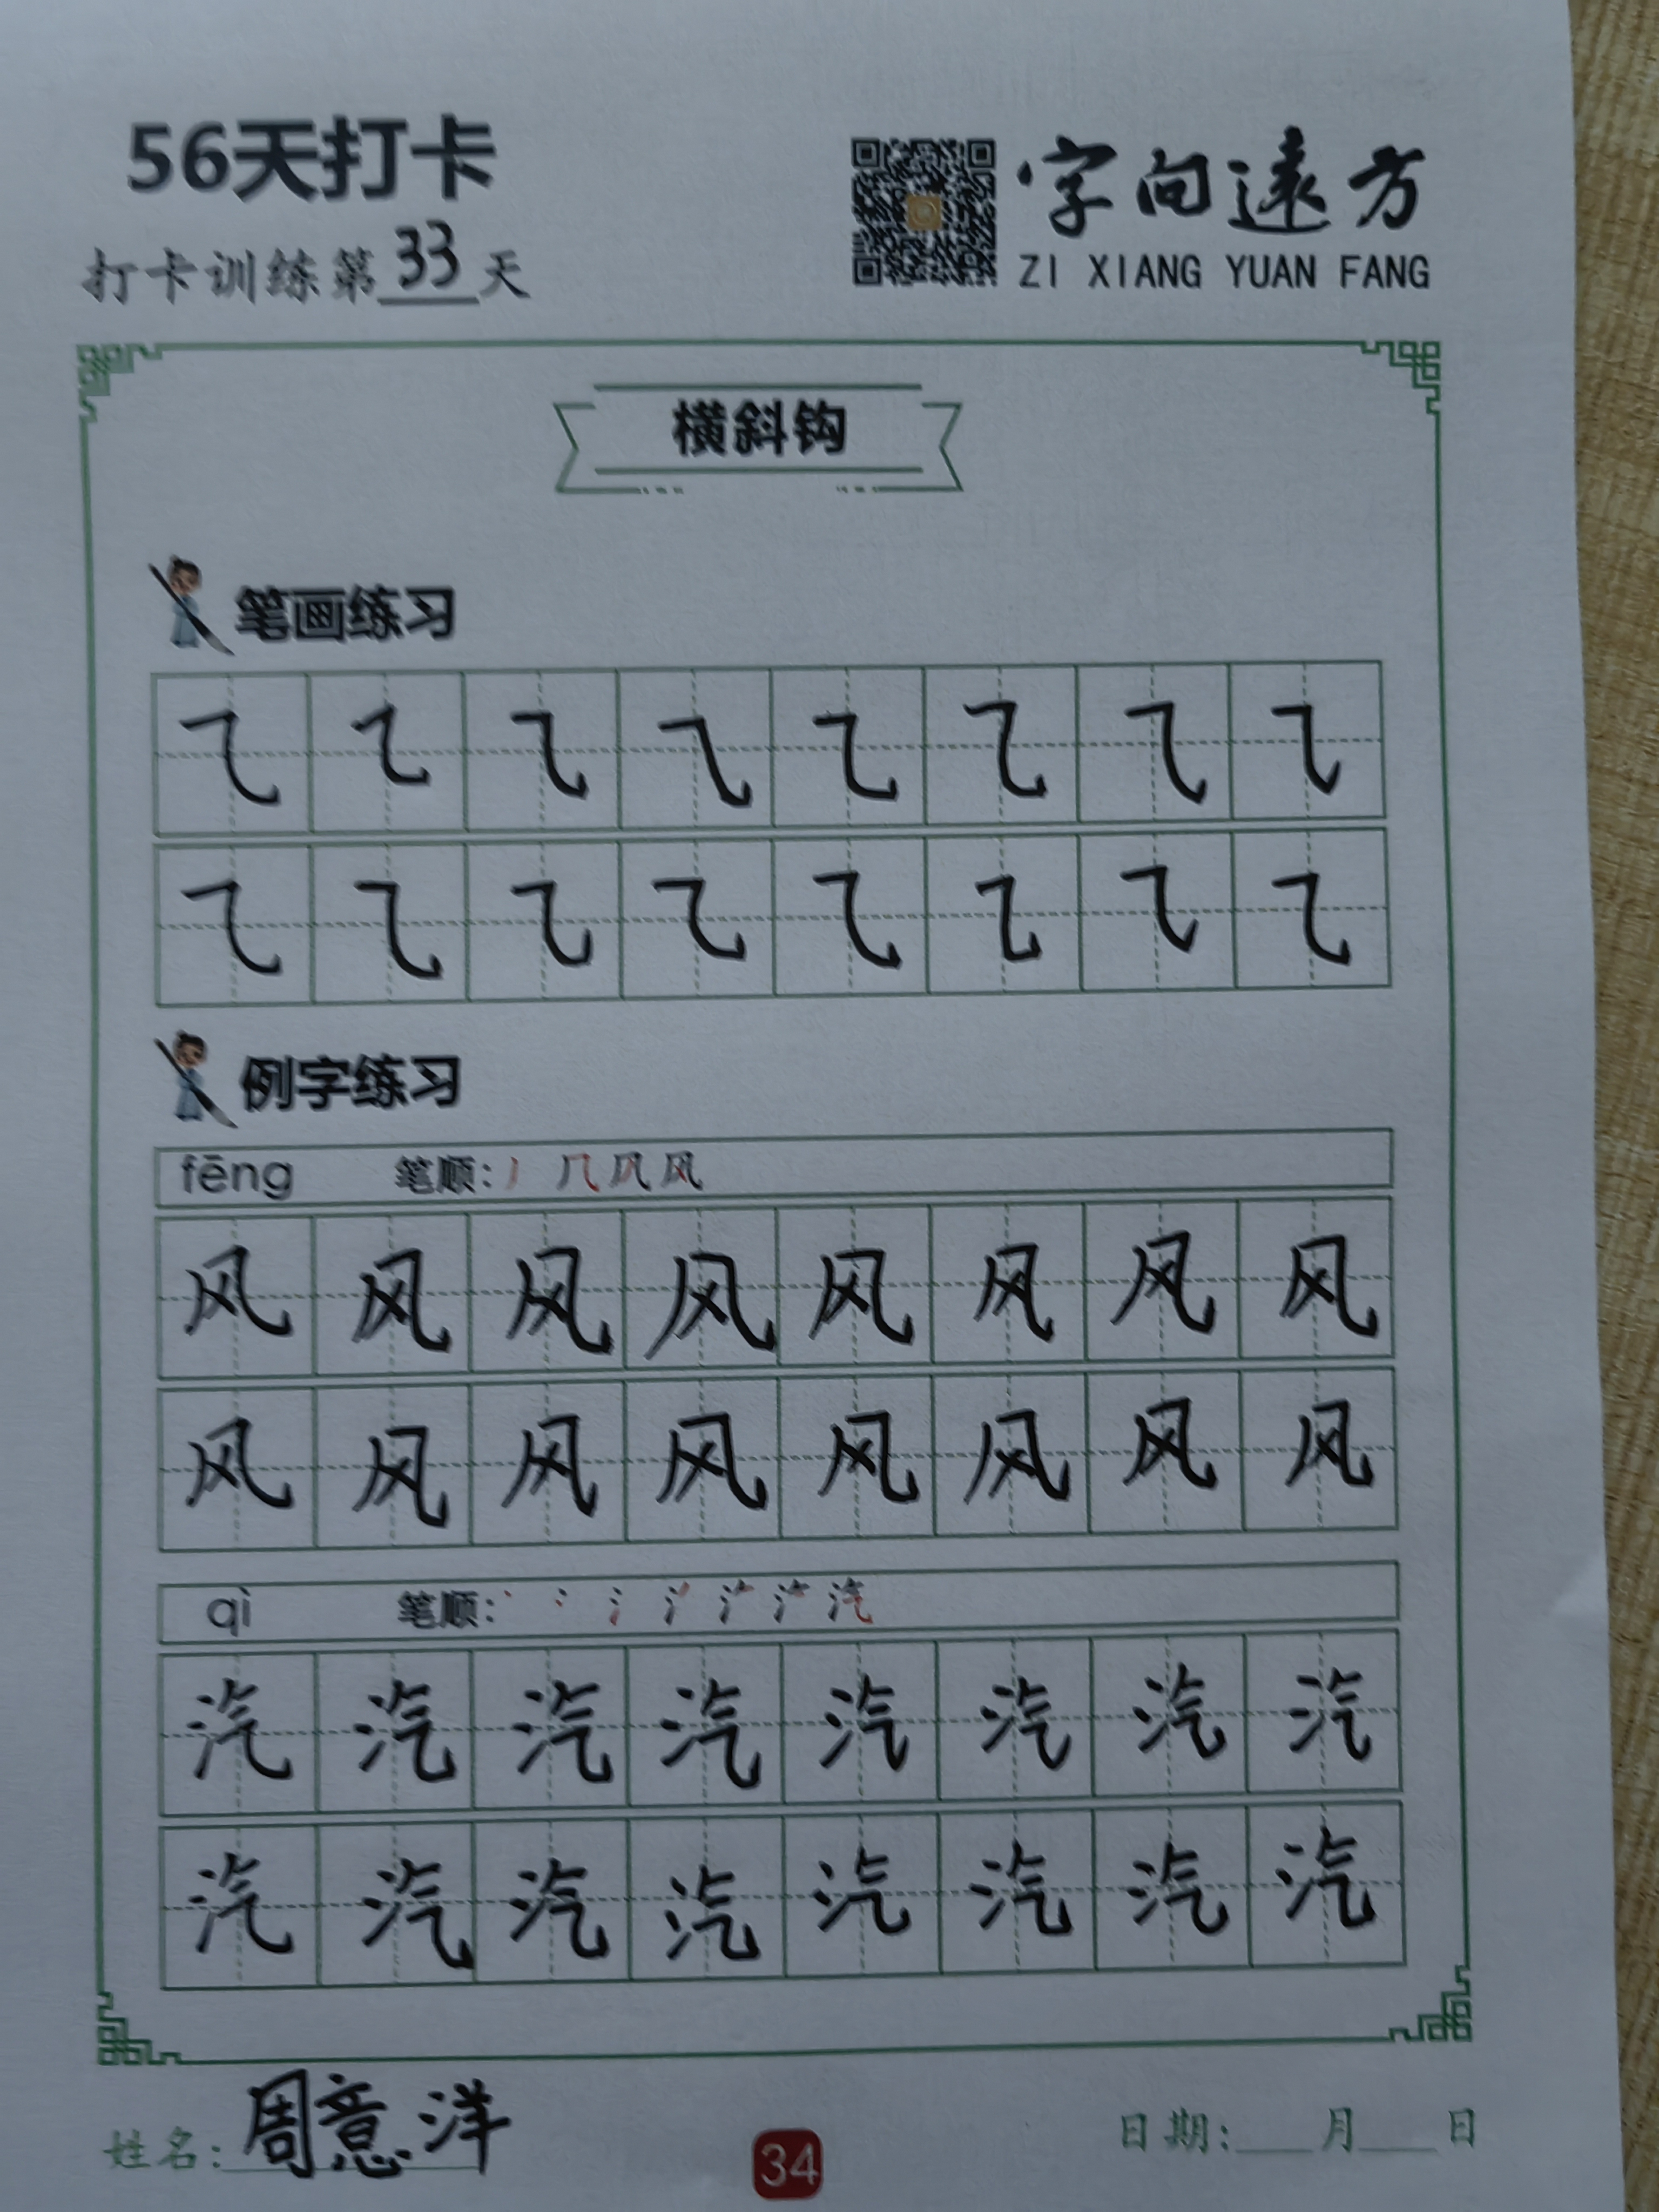 56天打卡
打卡训练第33天
字向遠方
ZI XIANG YUAN FANG
横斜钩
笔画练习
乁 乁 乁 乁 乁 乁 乁 乁
乁 乁 乁 乁 乁 乁 乁 乁
例字练习
fēng 笔顺: 丿 几 风 风
风 风 风 风 风 风 风 风
风 风 风 风 风 风 风 风
qì 笔顺: 汽
汽 汽 汽 汽 汽 汽 汽 汽
汽 汽 汽 汽 汽 汽 汽 汽
姓名: 周意洋
34
日期:___月___日